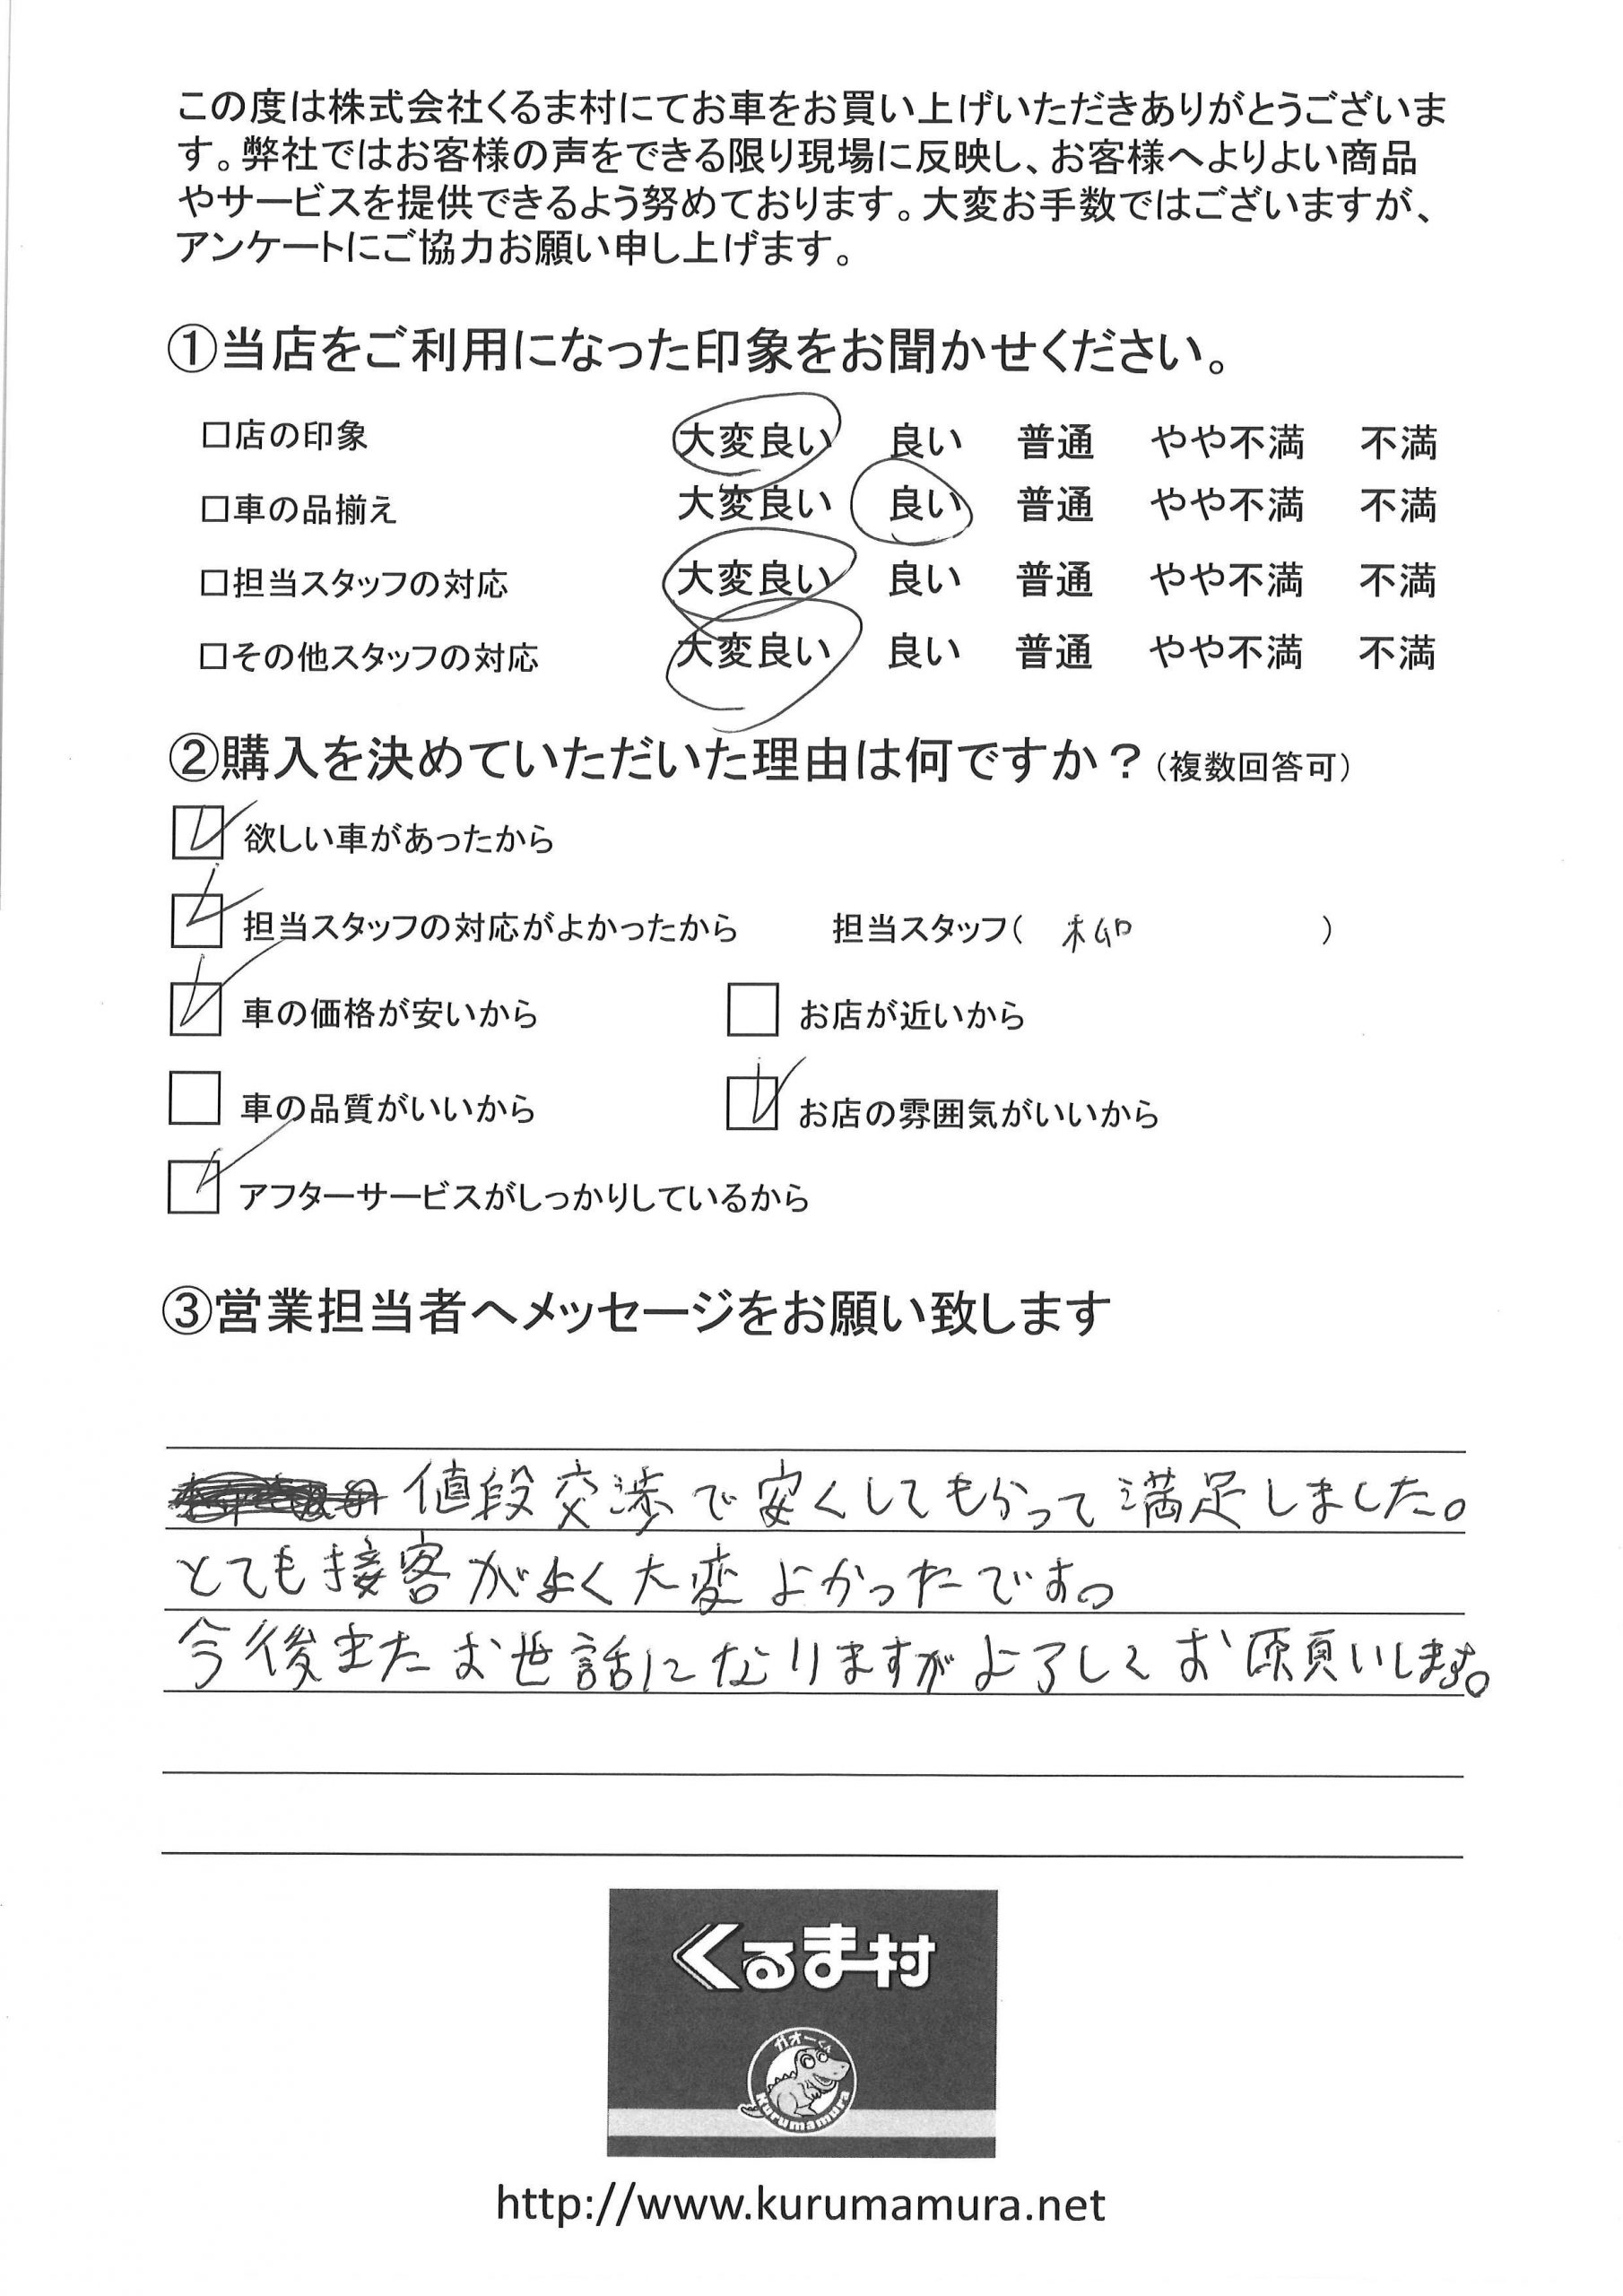 この度は株式会社くるま村にてお車をお買い上げいただきありがとうございま
す。弊社ではお客様の声をできる限り現場に反映し、お客様へよりよい商品
やサービスを提供できるよう努めております。大変お手数ではございますが、
アンケートにご協力お願い申し上げます。
①当店をご利用になった印象をお聞かせください。
□店の印象 大変良い 良い 普通 やや不満 不満
□車の品揃え 大変良い 良い 普通 やや不満 不満
□担当スタッフの対応 大変良い 良い 普通 やや不満 不満
□その他スタッフの対応 大変良い 良い 普通 やや不満 不満
②購入を決めていただいた理由は何ですか?(複数回答可)
欲しい車があったから
担当スタッフの対応がよかったから 担当スタッフ( 柳 )
車の価格が安いから お店が近いから
車の品質がいいから お店の雰囲気がいいから
アフターサービスがしっかりしているから
③営業担当者へメッセージをお願い致します
値段交渉で安くしてもらって満足しました。
とても接客がよく大変よかったです。
今後またお世話になりますがよろしくお願いします。
くるま村
ガオーくん
Kurumamura
http://www.kurumamura.net